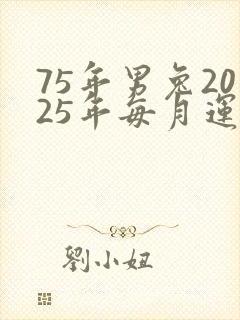 75年男兔20
25年每月運
劉小妞